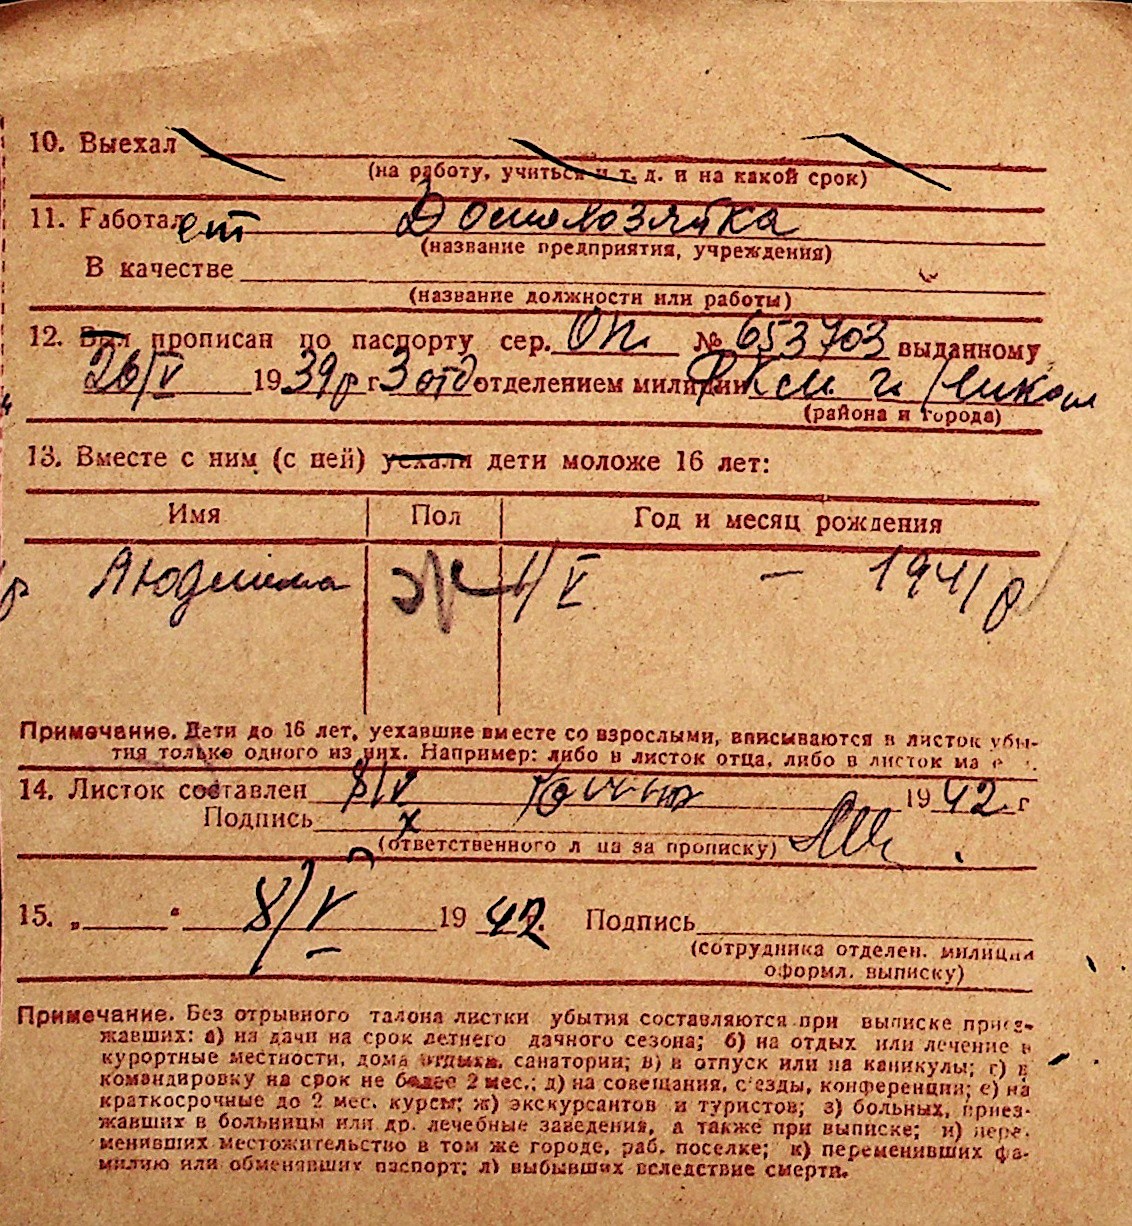 10. Выехал
(на работу, учиться и т. д. и на какой срок)
11. Работал ет Домохозяйка
(название предприятия, учреждения)
В качестве
(название должности или работы)
12. Был прописан по паспорту сер. ОП. № 653703 выданному
26/V 1939 р г. 3 отд отделением милиции РКМ г.
(района и города)
13. Вместе с ним (с ней) уехали дети моложе 16 лет:
Имя Пол Год и месяц рождения
Людмила Ж 1/V – 1941 р
Примечание. Дети до 16 лет, уехавшие вместе со взрослыми, вписываются в листок убы-
тия только одного из них. Например: либо в листок отца, либо в листок ма
14. Листок составлен 8/V 1942 г
Подпись х
(ответственного л ца за прописку)
15. „ “ 8/V 1942 г. Подпись
(сотрудника отделен. милиции
оформл. выписку)
Примечание. Без отрывного талона листки убытия составляются при выписке приез-
жавших: а) на дачи на срок летнего дачного сезона; б) на отдых или лечение в
курортные местности, дома отдыха, санатории; в) в отпуск или на каникулы; г) в
командировку на срок не более 2 мес.; д) на совещания, с'езды, конференции; е) на
краткосрочные до 2 мес. курсы; ж) экскурсантов и туристов; з) больных, приез-
жавших в больницы или др. лечебные заведения, а также при выписке; и) пере-
менивших местожительство в том же городе, раб. поселке; к) переменивших фа-
милию или обменявших паспорт; л) выбывших вследствие смерти.